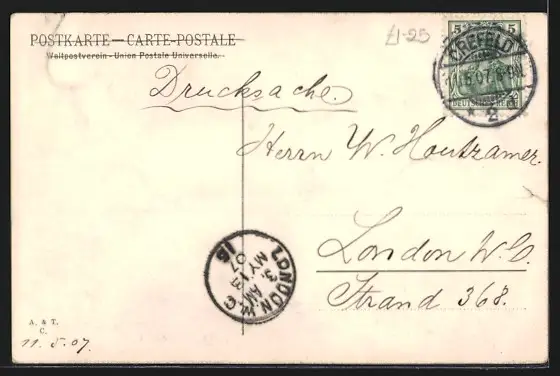 POSTKARTE — CARTE-POSTALE
Weltpostverein - Union Postale Universelle.
£1-25
5 5
CREFELD
11.5.07.
* 2
Drucksache.
Herrn W. Houtzamer.
London W.C.
Strand 368.
LONDON W.C
3. AM
MY 13
07
15
A. & T.
C.
11.5.07.